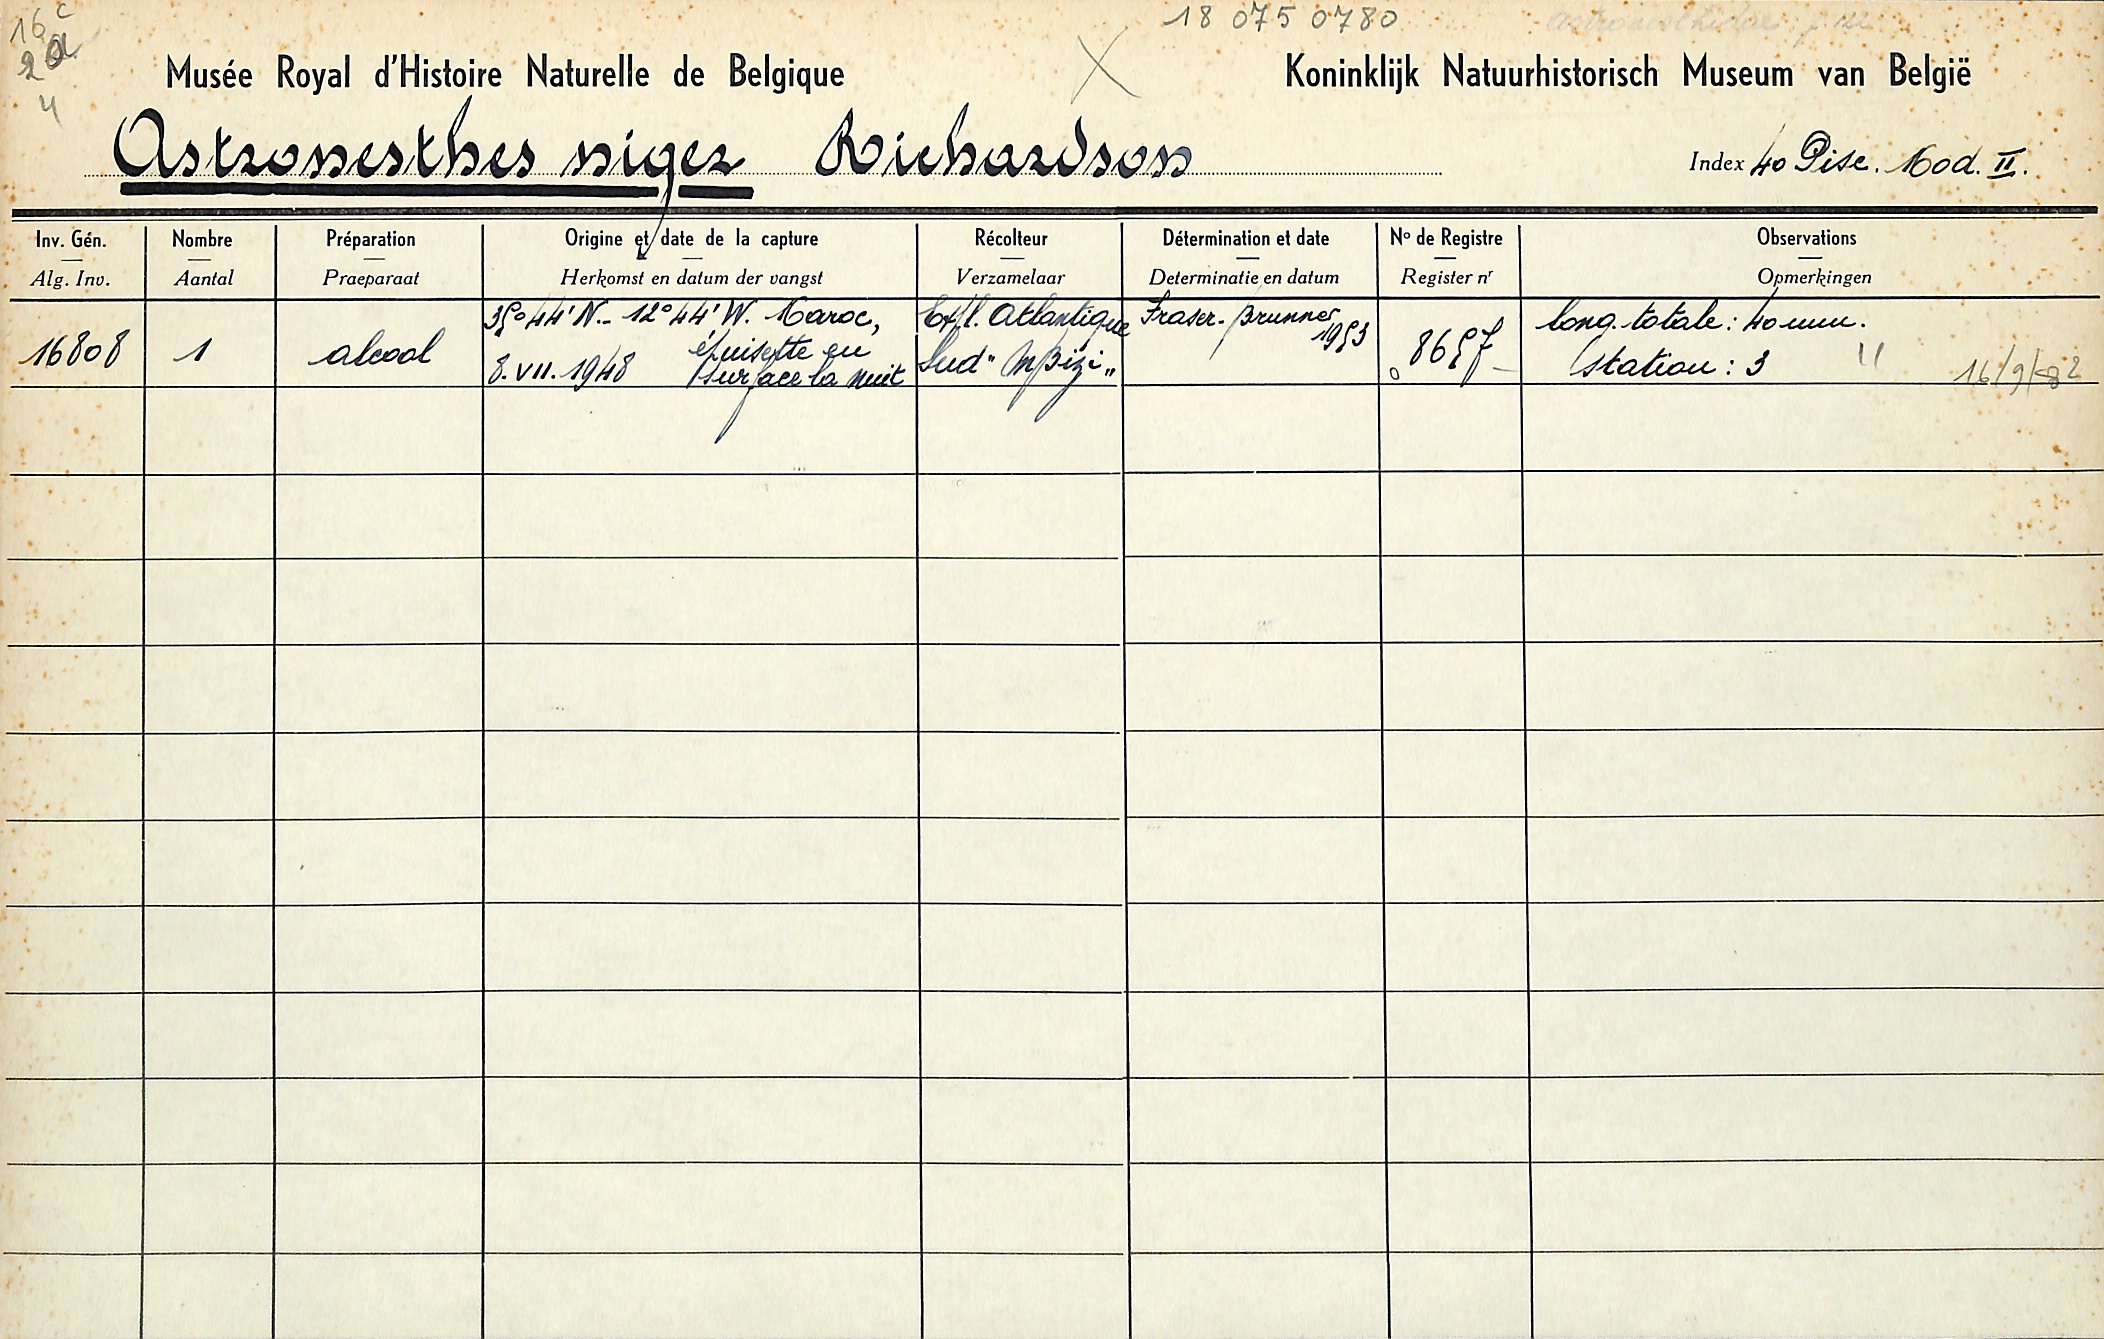 16c
18 075 0780
2a
4
Musée Royal d'Histoire Naturelle de Belgique
Koninklijk Natuurhistorisch Museum van België
Astronesthes niger Richardson
Index 40 Pisc. Mod. II.
Inv. Gén.
Alg. Inv.
Nombre
Aantal
Préparation
Praeparaat
Origine et date de la capture
Herkomst en datum der vangst
Récolteur
Verzamelaar
Détermination et date
Determinatie en datum
No de Registre
Register nr
Observations
Opmerkingen
16808
1
alcool
35°44'N.- 12°44'W. Maroc,
8.VII.1948 épuisette en
surface la nuit
Expl. Atlantique
Sud "Mbizi"
Fraser-Brunner
1953
8657
long. totale: 40 mm.
Station: 3